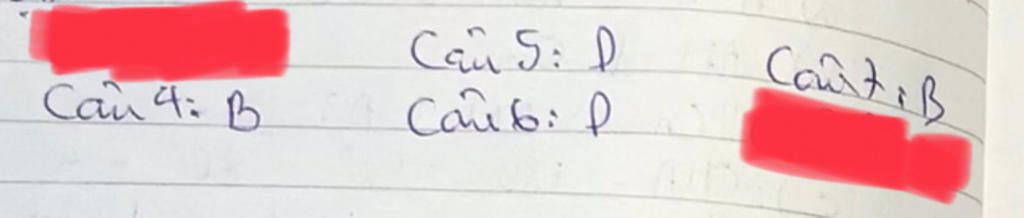 Câu 4: B
Câu 5: D
Câu 6: D
Câu 7: B